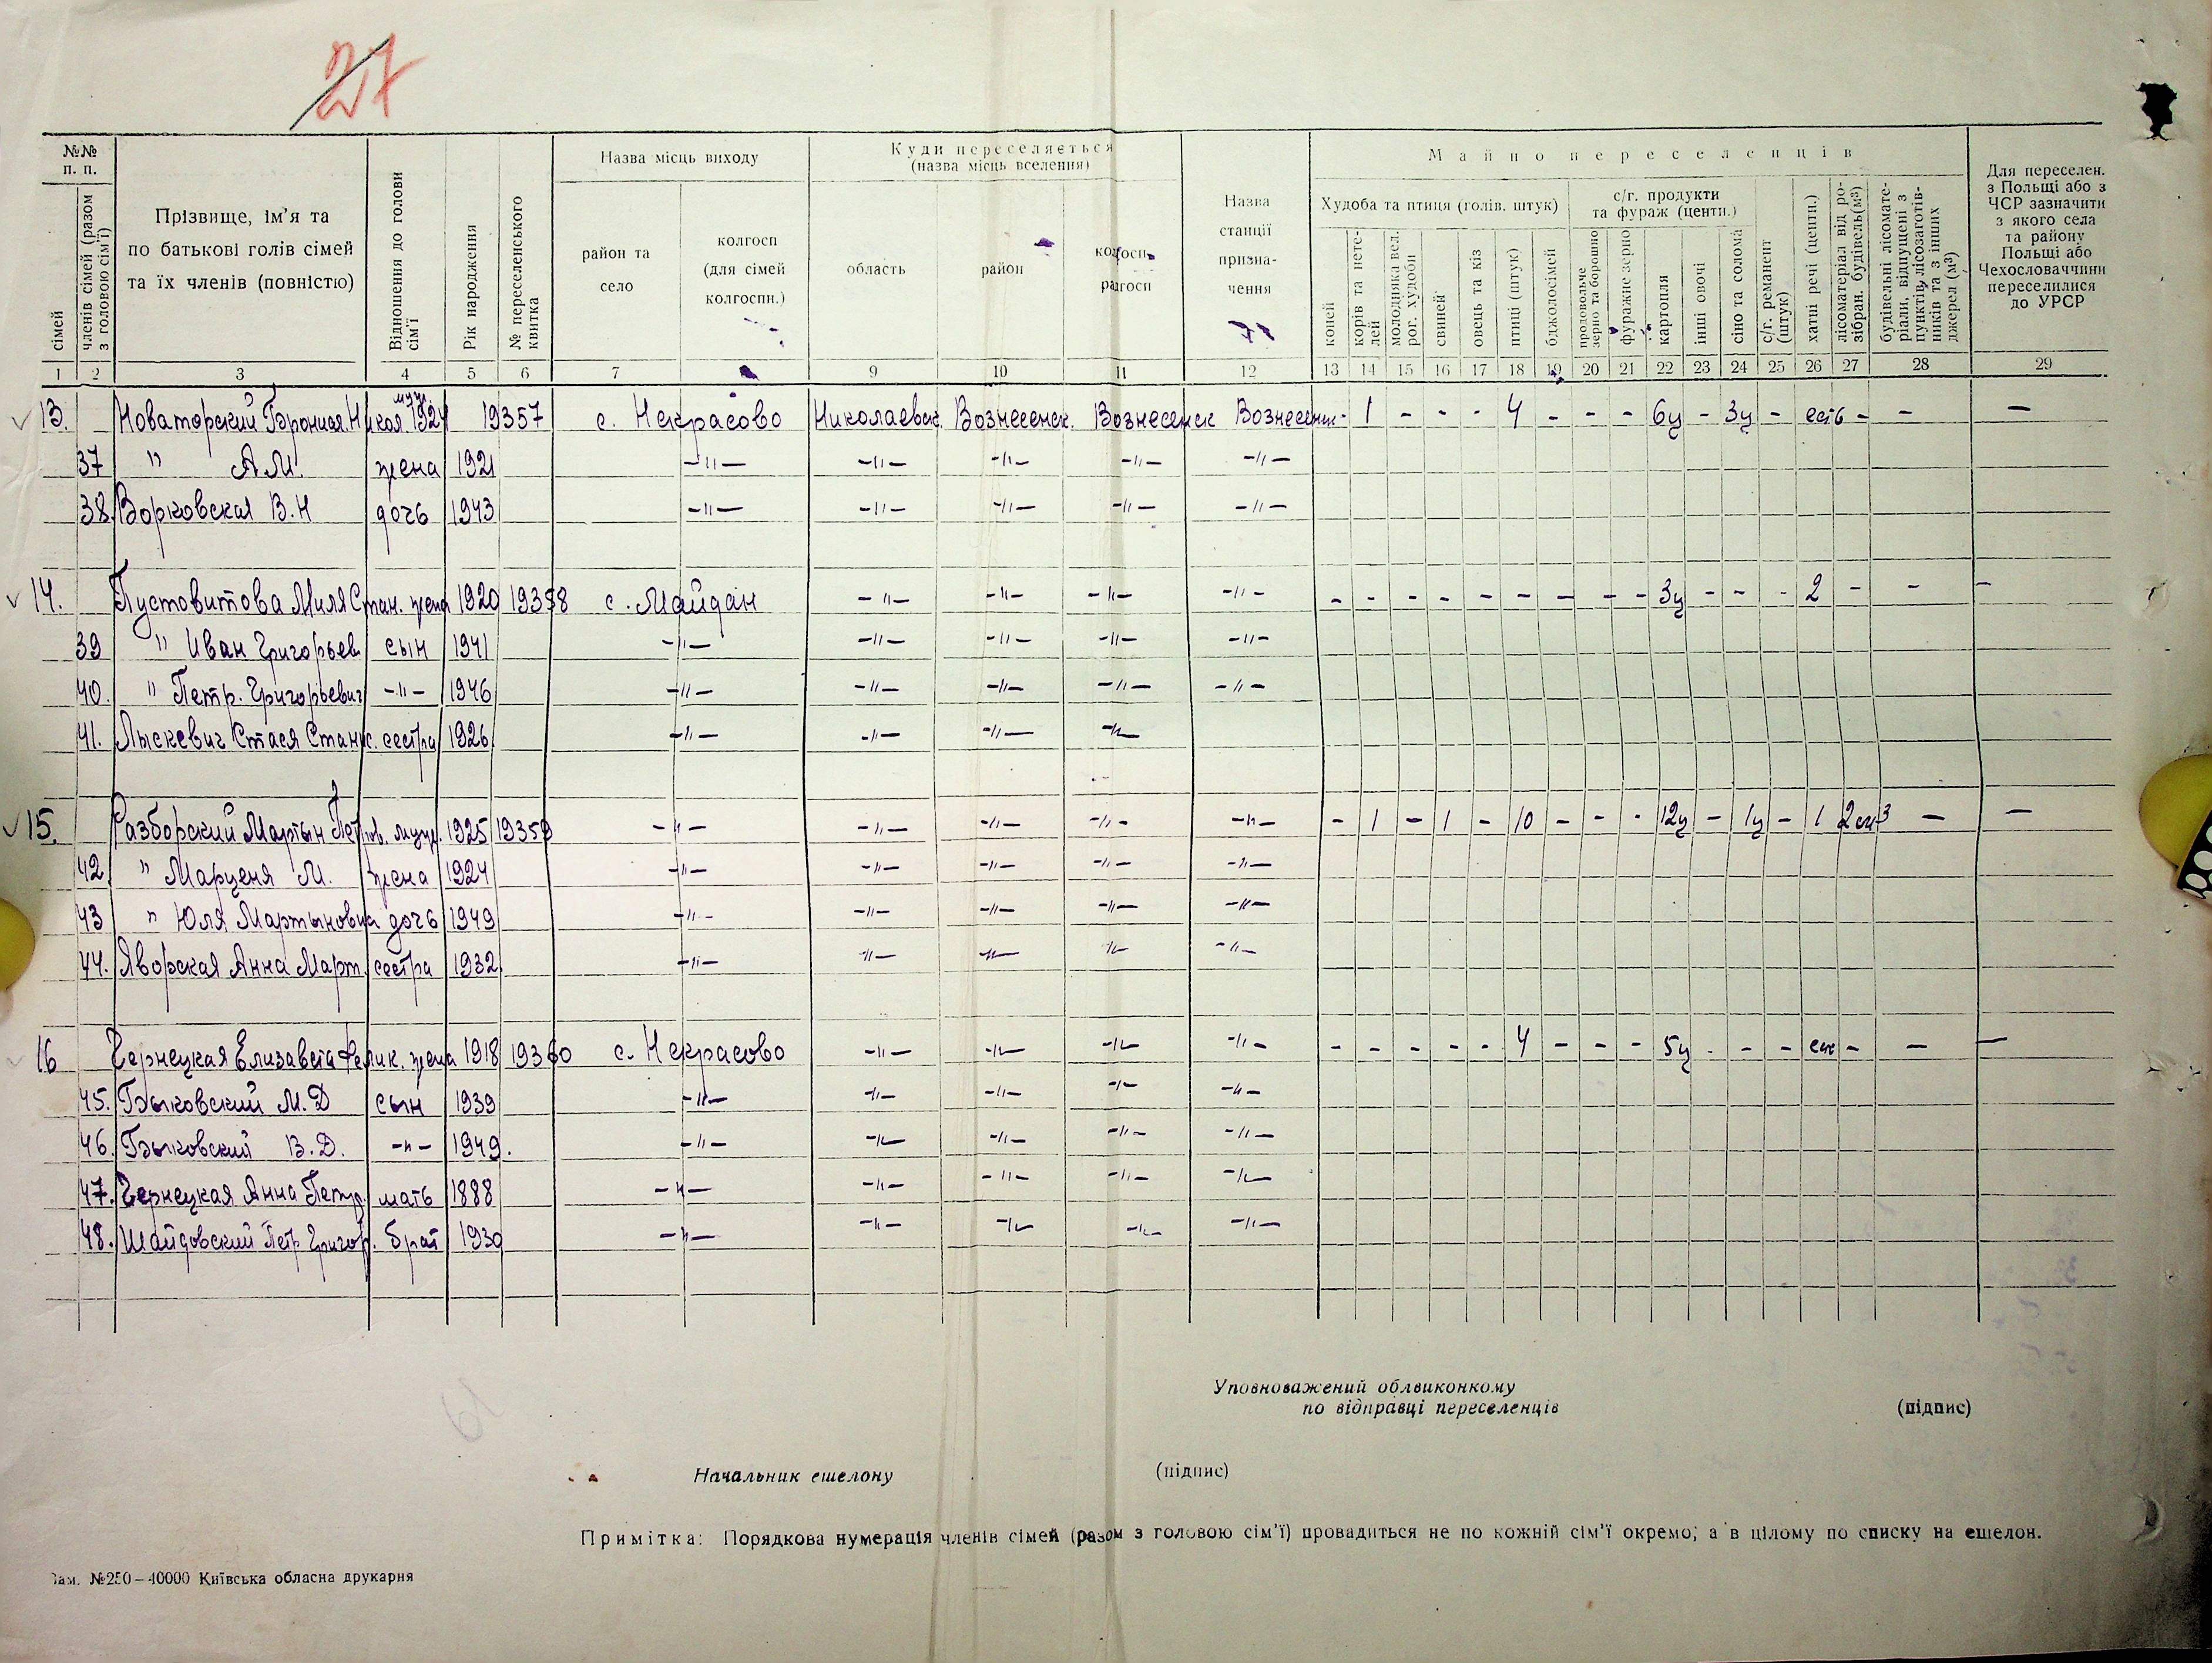 27
№№ п. п.
сімей
членів сімей (разом з головою сім'ї)
Прізвище, ім'я та по батькові голів сімей та їх членів (повністю)
Відношення до голови сім'ї
Рік народження
№ переселенського квитка
Назва місць виходу
район та село
колгосп (для сімей колгоспн.)
Куди переселяється (назва місць вселення)
область
район
колгосп, радгосп
Назва станції призначення
Майно переселенців
Худоба та птиця (голів. штук)
коней
корів та нетелей
молодняка вел. рог. худоби
свиней
овець та кіз
птиці (штук)
бджолосімей
с/г. продукти та фураж (центн.)
продовольче зерно та борошно
фуражне зерно
картопля
інші овочі
сіно та солома
с/г. реманент (штук)
хатні речі (центн.)
лісоматеріал від розібран. будівель(м³)
будівельні лісоматеріали, відпущені з пунктів, лісозаготівників та з інших джерел (м³)
Для переселен. з Польщі або з ЧСР зазначити з якого села та району Польщі або Чехословаччини переселилися до УРСР
1 2 3 4 5 6 7 9 10 11 12 13 14 15 16 17 18 19 20 21 22 23 24 25 26 27 28 29
13. Новаторский муж. 1924 19357 с. Некрасово Николаевск. Вознесенск. Вознесенск Вознесенск - 1 - - - 4 - - - 6ц - 3ц - есть - - -
37 " А.М. жена 1921 -"- -"- -"- -"- -"-
38. Ворковская В.Н дочь 1943 -"- -"- -"- -"- -"-
14. Пустовитова Миля Стан. жена 1920 19358 с. Майдан -"- -"- -"- -"- - - - - - - - - - 3ц - - - 2 - - -
39 " Иван Григорьев сын 1941 -"- -"- -"- -"- -"-
40. " Петр. Григорьевич -"- 1946 -"- -"- -"- -"- -"-
41. Лыскевич Стася Станис. сестра 1926 -"- -"- -"- -"-
15. Разборский Мартын Петров. муж. 1925 19359 -"- -"- -"- -"- -"- - 1 - 1 - 10 - - - 12ц - 1ц - 1 2м3 - -
42 " Марценя М. жена 1924 -"- -"- -"- -"- -"-
43 " Юля Мартыновна дочь 1949 -"- -"- -"- -"- -"-
44. Яворская Анна Март. сестра 1932 -"- -"- -"- -"- -"-
16 Чернецкая Елизавета Фелик. жена 1918 19360 с. Некрасово -"- -"- -"- -"- - - - - - 4 - - - 5ц - - - ест - - -
45. Быковский М.Д сын 1939 -"- -"- -"- -"- -"-
46. Быковский В.Д. -"- 1949. -"- -"- -"- -"- -"-
47. Чернецкая Анна Петр. мать 1888 -"- -"- -"- -"- -"-
48. Шайдовский Петр Григор. брат 1930 -"- -"- -"- -"- -"-
Уповноважений облвиконкому
по відправці переселенців (підпис)
Начальник ешелону (підпис)
Примітка: Порядкова нумерація членів сімей (разом з головою сім'ї) провадиться не по кожній сім'ї окремо, а в цілому по списку на ешелон.
Зам. №250–40000 Київська обласна друкарня